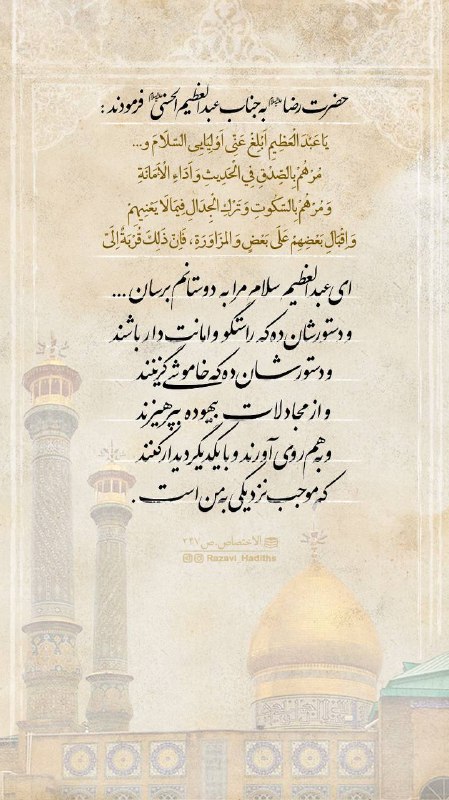 حضرت رضا علیه‌السلام به جناب عبدالعظیم الحسنی علیه‌السلام فرمودند :
يَا عَبْدَ الْعَظِيمِ أَبْلِغْ عَنِّي أَوْلِيَايِيَ السَّلَامَ وَ...
مُرْهُمْ بِالصِّدْقِ فِي الْحَدِيثِ وَ أَدَاءِ الْأَمَانَةِ
وَ مُرْهُمْ بِالسُّكُوتِ وَ تَرْكِ الْجِدَالِ فِيمَا لَا يَعْنِيهِمْ
وَ إِقْبَالِ بَعْضِهِمْ عَلَى بَعْضٍ وَ الْمُزَاوَرَةِ، فَإِنَّ ذَلِكَ قُرْبَةٌ إِلَيَّ
ای عبدالعظیم سلام مرا به دوستانم برسان ...
و دستورشان ده که راستگو و امانت دار باشند
و دستورشان ده که خاموشی گزینند
و از مجادلات بیهوده بپرهیزند
و به هم روی آورند و با یکدیگر دیدار کنند
که موجب نزدیکی به من است .
الاختصاص، ص ۲۴۷
Razavi_Hadiths